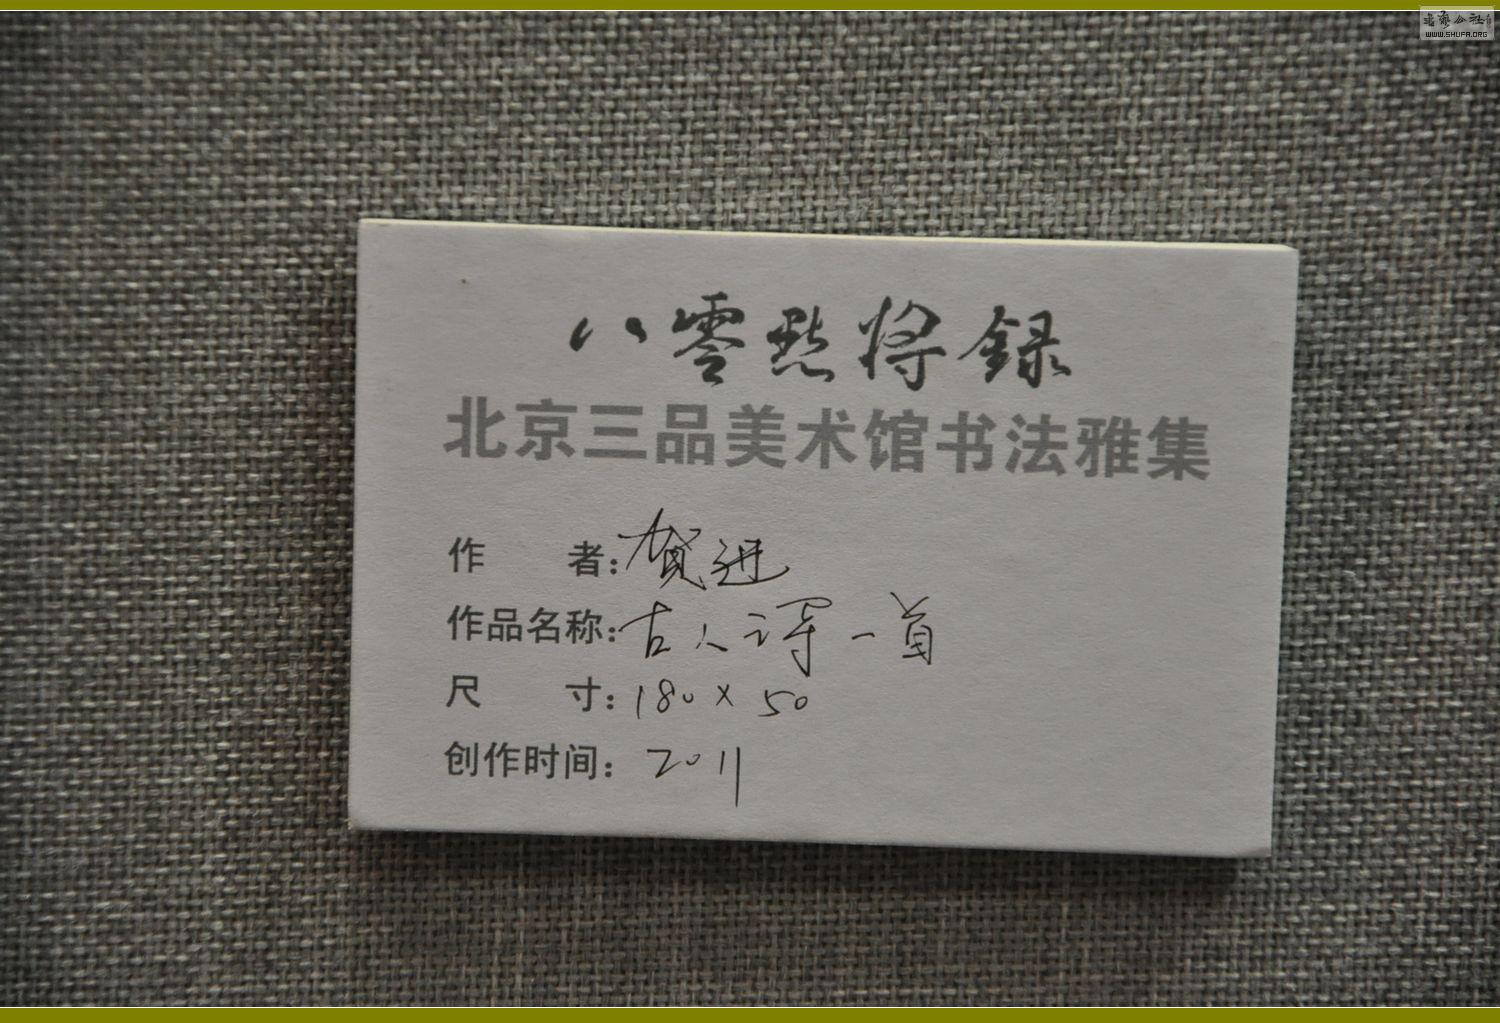 八零點将録
北京三品美术馆书法雅集
作 者:贺进
作品名称:古人诗一首
尺 寸:180×50
创作时间:2011
WWW.SHUFA.ORG